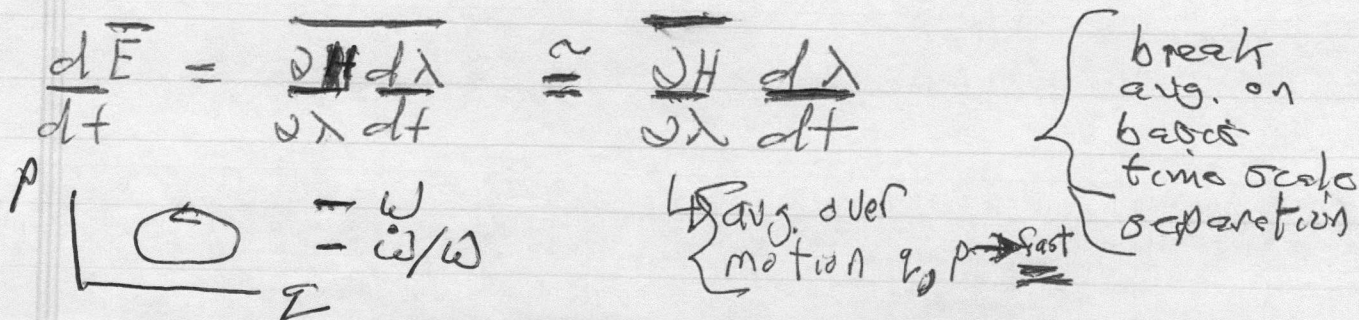 dE̅/dt = \overline{∂H/∂λ dλ/dt} ≅ \overline{∂H/∂λ} dλ/dt
{ break
avg. on
basis
time scale
separation
p
q
- ω
- ω̇/ω
↳ { avg. over
motion q, p → fast